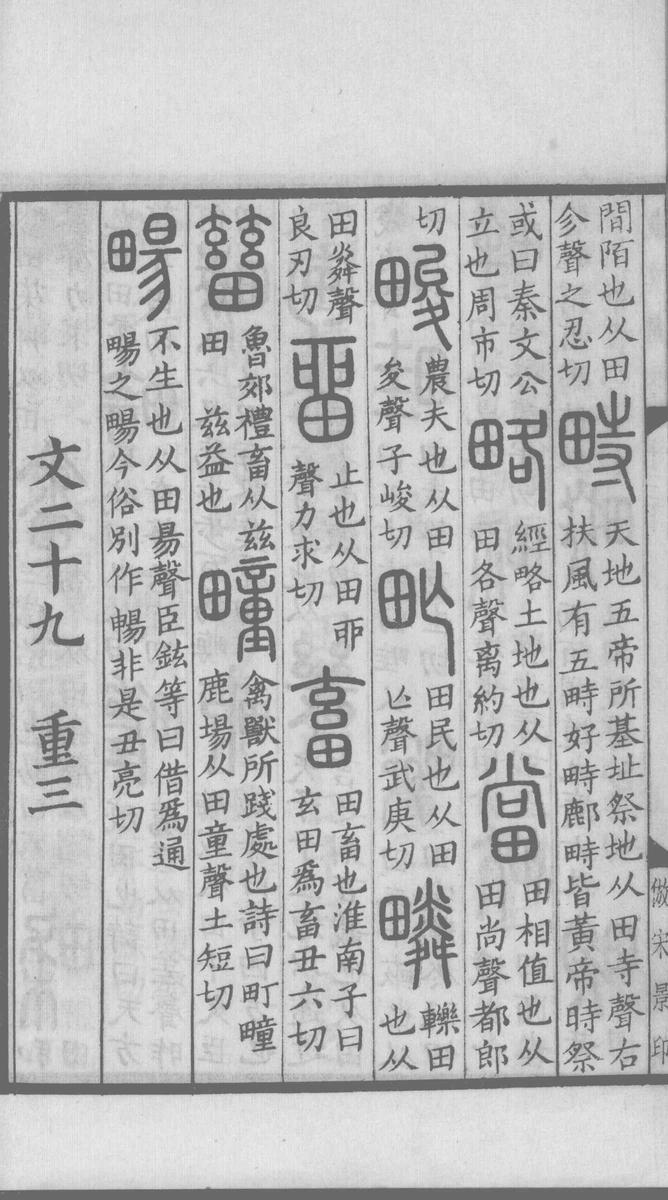 間陌也从田㐱聲之忍切畤天地五帝所基址祭地从田寺聲右扶風有五畤好畤鄜畤皆黃帝時祭
或曰秦文公立也周市切略經略土地也从田各聲离約切當田相值也从田尚聲都郎
切畯農夫也从田夋聲子峻切甿田民也从田亾聲武庚切疄轢田也从
田粦聲良刃切留止也从田丣聲力求切畜田畜也淮南子曰玄田爲畜丑六切
𤲸魯郊禮畜从茲田茲益也疃禽獸所踐處也詩曰町疃鹿場从田童聲土短切
畼不生也从田昜聲臣鉉等曰借爲通畼之畼今俗別作暢非是丑亮切
文二十九 重三
倣宋景印